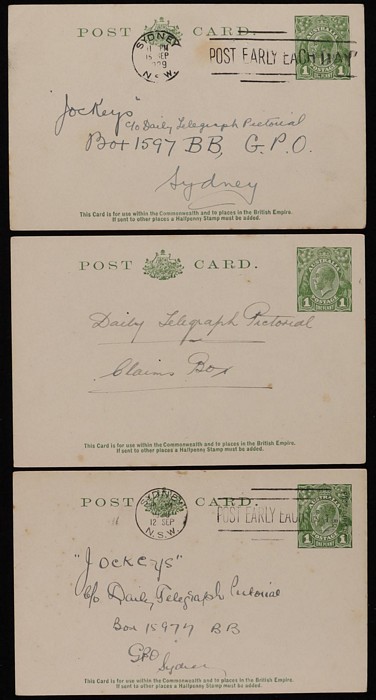 POST CARD.
SYDNEY
11 PM
15 SEP
N.S.W.
POST EARLY EACH DAY
AUSTRALIA
1 POSTAGE 1
ONE PENNY
"Jockeys"
c/o Daily Telegraph Pictorial
Box 1597 BB, G.P.O.
Sydney
This Card is for use within the Commonwealth and to places in the British Empire.
If sent to other places a Halfpenny Stamp must be added.
POST CARD.
AUSTRALIA
1 POSTAGE 1
ONE PENNY
Daily Telegraph Pictorial
Claims Box
This Card is for use within the Commonwealth and to places in the British Empire.
If sent to other places a Halfpenny Stamp must be added.
POST CARD.
SYDNEY
12 SEP
N.S.W.
POST EARLY EACH
AUSTRALIA
1 POSTAGE 1
ONE PENNY
"Jockeys"
c/o Daily Telegraph Pictorial
Box 1597 BB
GPO
Sydney
This Card is for use within the Commonwealth and to places in the British Empire.
If sent to other places a Halfpenny Stamp must be added.